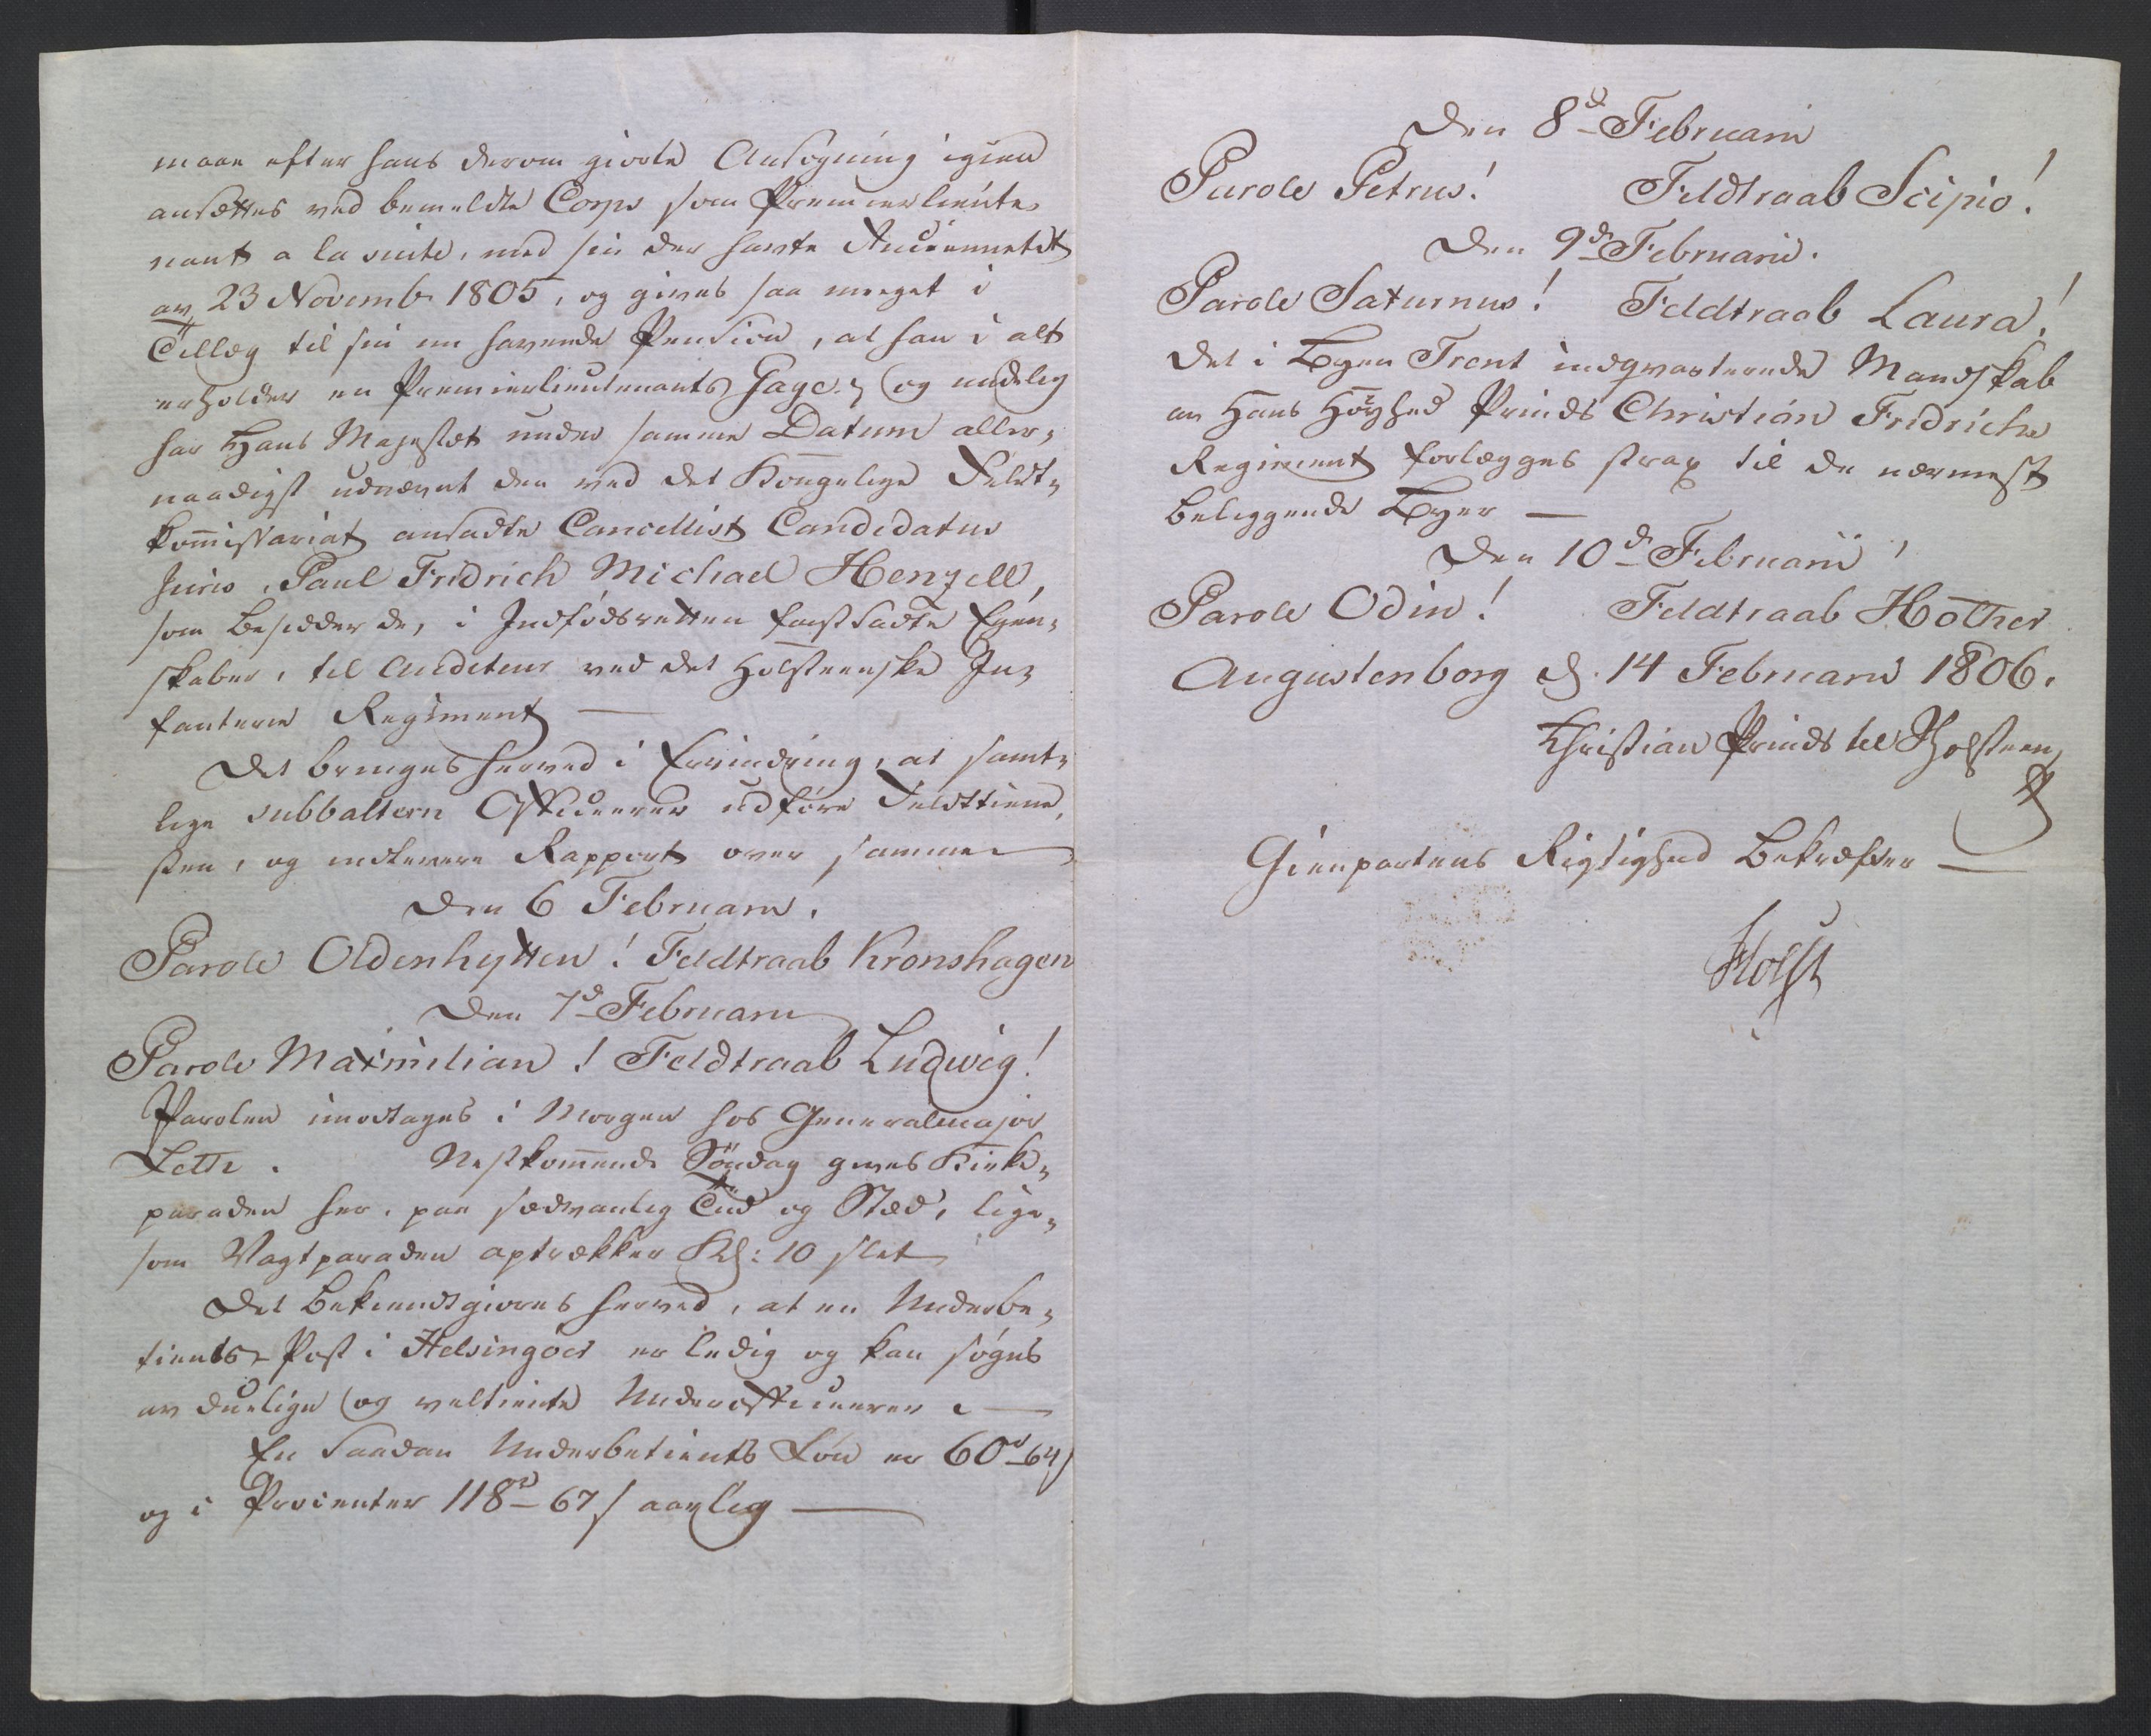 maae efter hans derom giorte Ansøgning igien
ansættes ved bemeldte Corps som Premierlieute-
nant a la suite, med sin der havte Anciennetet
av 23 Novemb. 1805, og gives saa meeget i
Tillæg til sin nu havende Pension, at han i alt
erholder en Premierlieutenants Gage; og endelig
har Hans Majestet under samme Datum aller-
naadigst udnævnt den ved det Kongelige Feldt-
kom̄issariat ansadte Cancellist Candidatus
Juris, Paul Fridrich Michael Henzell,
som besidder de, i Indfødsretten fastsadte Egen-
skaber, til Auditeur ved det Holsteenske In-
fanterie Regiment —
Det bringes herved i Erindring, at samt-
lige subbaltern Officierer udføre Feldttiene-
sten, og indlevere Rapport over samme —
Den 6 Februarii.
Parole Oldenhytten! Feldtraab Kronshagen
Den 7d Februarii
Parole Maximilian! Feldtraab Ludwig!
Parolen imodtages i Morgen hos Generalmajor
Leth. Nestkom̄ende Søndag gives Kirke-
paraden her, paa sædvanlig Tiid og Stæd, lige-
som Vagtparaden optrækker Kl: 10 slet
Det bekiendtgiøres herved, at en Underbe-
tients Post i Helsingöer er ledig og kan søges
av duelige og veltiente Underofficierer —
En saadan Underbetients Løn er 60rd 64 s
og i Procenter 118rd 67 s aarlig —
Den 8d Februarii
Parole Petrus! Feldtraab Scipio!
Den 9d Februarii.
Parole Saturnus! Feldtraab Laura!
Det i Byen Trent indqvarterede Mandskab
av Hans Høyhed Prinds Christian Fridrichs
Regiment forlægges strax til de nærmest
beliggende Byer —
Den 10d Februarii
Parole Odin! Feldtraab Hother
Augustenborg d. 14 Februarii 1806.
Christian Prinds til Holsteen
Gienpartens Rigtighed Bekræfter —
Holst